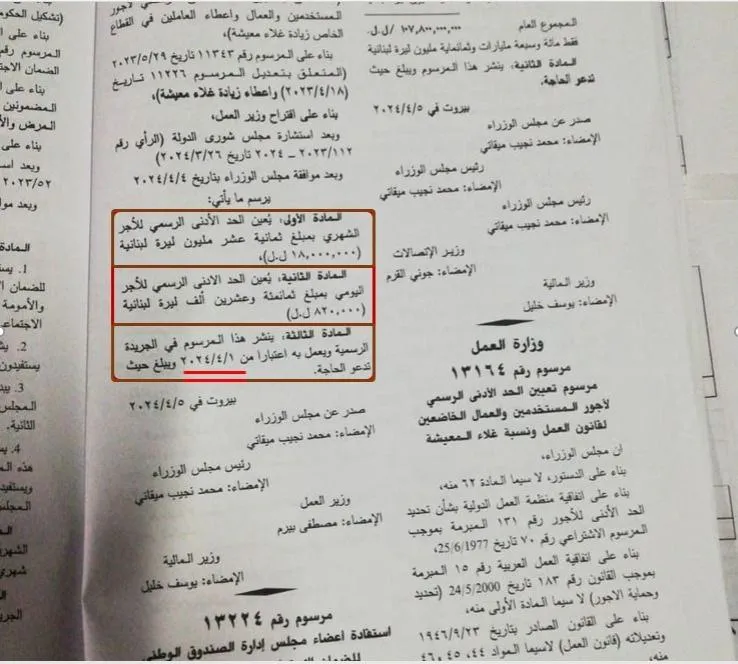 المجموع العام
١٠٧,٨٠٠,٠٠٠,٠٠٠ /ل.ل
فقط مائة وسبعة مليارات وثمانماية مليون ليرة لبنانية
المادة الثانية: ينشر هذا المرسوم ويبلغ حيث
تدعو الحاجة.
بيروت في ٢٠٢٤/٤/٥
صدر عن مجلس الوزراء
الإمضاء: محمد نجيب ميقاتي
رئيس مجلس الوزراء
الإمضاء: محمد نجيب ميقاتي
رئيس مجلس الوزراء
الإمضاء: محمد نجيب ميقاتي
وزير الإتصالات
الإمضاء: جوني القرم
وزير المالية
الإمضاء: يوسف خليل
وزارة العمل
مرسوم رقم ١٣١٦٤
مرسوم تعيين الحد الأدنى الرسمي
لأجور المستخدمين والعمال الخاضعين
لقانون العمل ونسبة غلاء المعيشة
ان مجلس الوزراء،
بناء على الدستور، لا سيما المادة ٦٢ منه،
بناء على اتفاقية منظمة العمل الدولية بشأن تحديد
الحد الأدنى للأجور رقم ١٣١ المبرمة بموجب
المرسوم الاشتراعي رقم ٧٠ تاريخ 25/6/1977،
بناء على اتفاقية العمل العربية رقم ١٥ المبرمة
بموجب القانون رقم ١٨٣ تاريخ 24/5/2000 (تحديد
وحماية الاجور) لا سيما المادة الأولى منه،
بناء على القانون الصادر بتاريخ ١٩٤٦/٩/٢٣
وتعديلاته (قانون العمل) لاسيما المواد ٤٤، ٤٥، ٤٦
منه،
المستخدمين والعمال واعطاء العاملين في القطاع
الخاص زيادة غلاء معيشة)،
بناء على المرسوم رقم ١١٣٤٣ تاريخ ٢٠٢٣/٥/٢٩
(المتعلق بتعديل المرسوم ١١٢٢٦ تاريخ
٢٠٢٣/٤/١٨) واعطاء زيادة غلاء معيشة)،
بناء على اقتراح وزير العمل،
وبعد استشارة مجلس شورى الدولة (الرأي رقم
٢٠٢٣/١١٢ – ٢٠٢٤ تاريخ ٢٠٢٤/٣/٢٦)
وبعد موافقة مجلس الوزراء بتاريخ ٢٠٢٤/٤/٤
يرسم ما يأتي:
المادة الأولى: يُعين الحد الأدنى الرسمي للأجر
الشهري بمبلغ ثمانية عشر مليون ليرة لبنانية
(١٨,٠٠٠,٠٠٠ ل.ل)،
المادة الثانية: يُعين الحد الادنى الرسمي للأجر
اليومي بمبلغ ثمانمئة وعشرين ألف ليرة لبنانية
(٨٢٠,٠٠٠ ل.ل)
المادة الثالثة: ينشر هذا المرسوم في الجريدة
الرسمية ويعمل به اعتبارا من ٢٠٢٤/٤/١ ويبلغ حيث
تدعو الحاجة.
بيروت في ٢٠٢٤/٤/٥
صدر عن مجلس الوزراء
الإمضاء: محمد نجيب ميقاتي
رئيس مجلس الوزراء
الإمضاء: محمد نجيب ميقاتي
وزير العمل
الإمضاء: مصطفى بيرم
وزير المالية
الإمضاء: يوسف خليل
مرسوم رقم ١٣٢٢٤
استفادة أعضاء مجلس إدارة الصندوق الوطني
بناء على
المرسوم رقم
الضمان
بناء على
المضمونين
المرض
بناء على
وبعد
٢٠٢٣/٥٢
وبعد
المادة
1.
للضمان
والأمومة
2.
يستفيدون
3.
المجلس
الثانية.
4.
هذه
ويستفيد
المجلس
الشهري